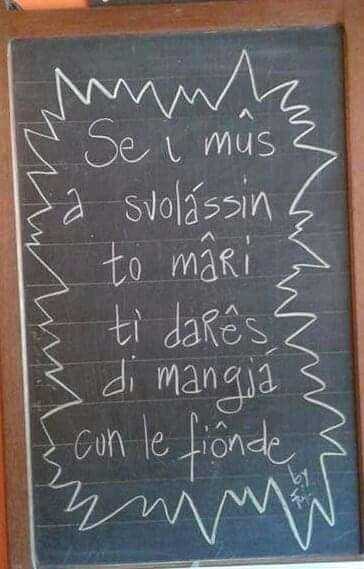 Se i mûs
a svolássin
to mâri
ti darês
di mangjá
cun le fiônde
by